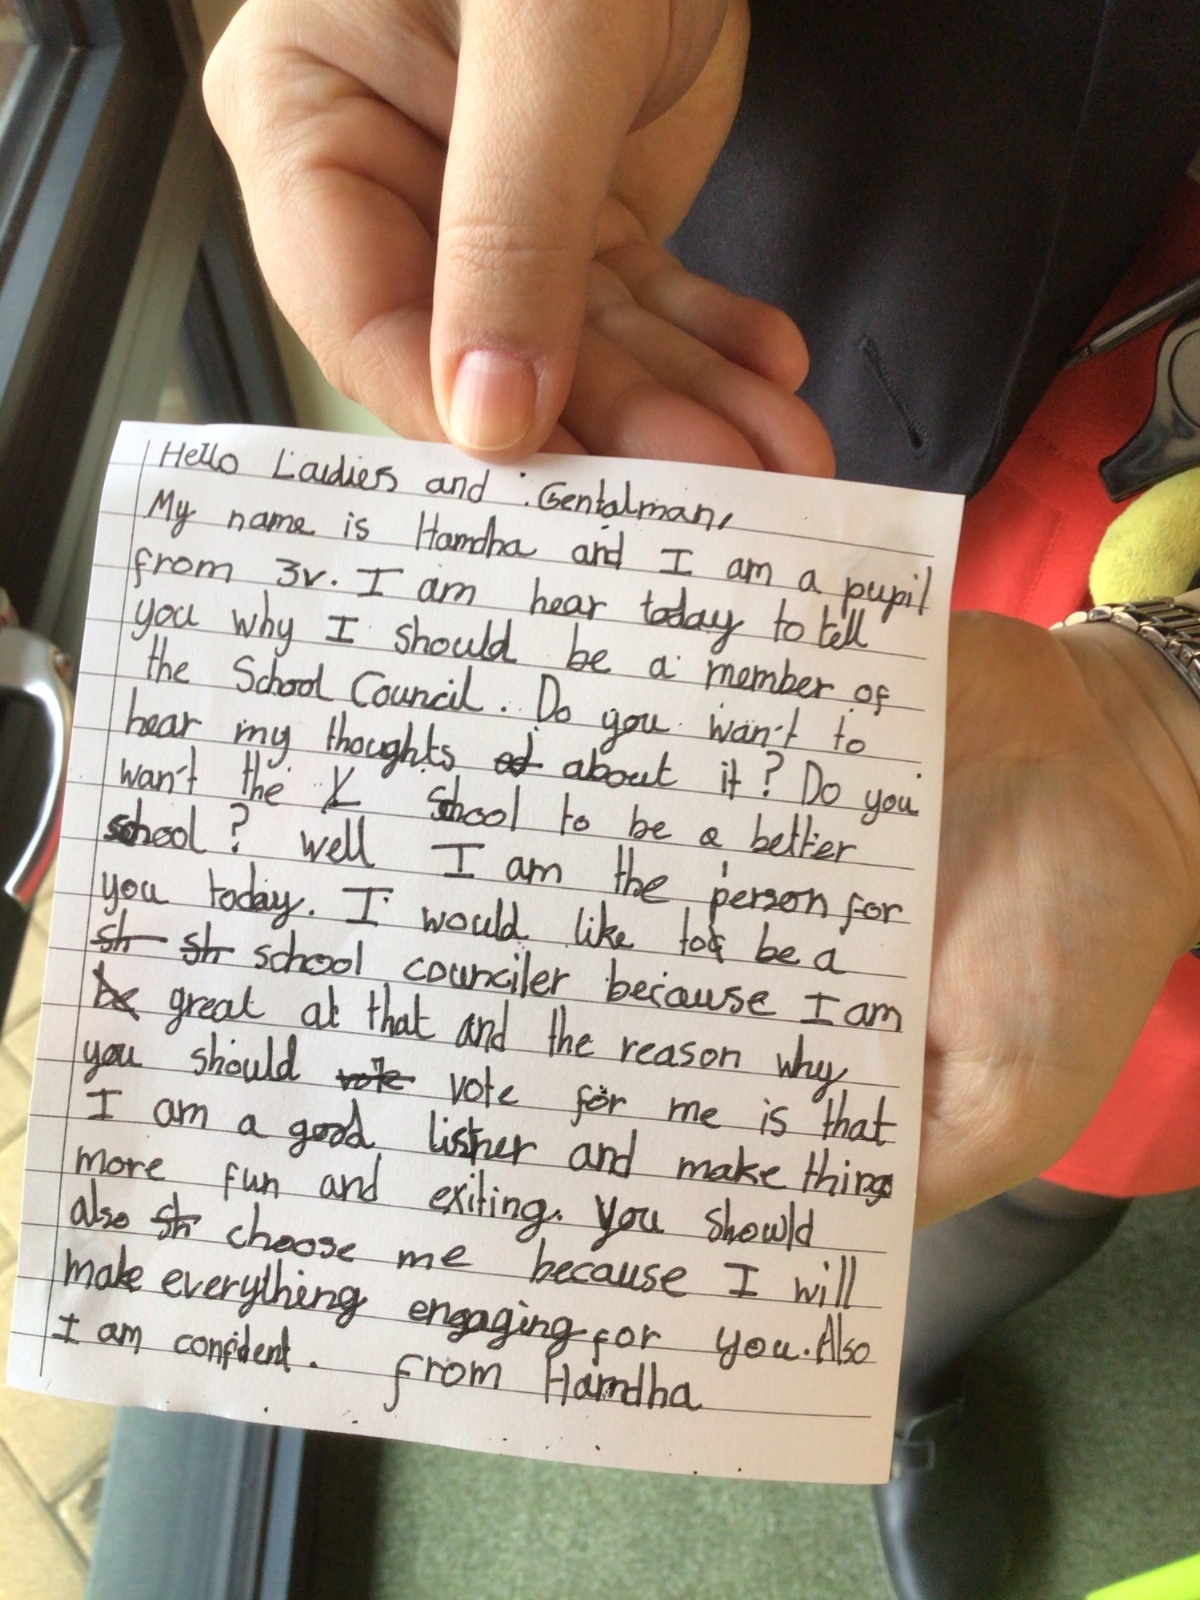 Hello Laidies and Gentalman,
My name is Hamdha and I am a pupil
from 3v. I am hear today to tell
you why I should be a member of
the School Council. Do you wan't to
hear my thoughts about it? Do you
wan't the School to be a better
school? well I am the person for
you today. I would like to be a
sh sh school counciler because I am
be great at that and the reason why
you should vote vote for me is that
I am a good listner and make things
more fun and exiting. You should
also sh choose me because I will
make everything engaging for you. Also
I am confident. from Hamdha